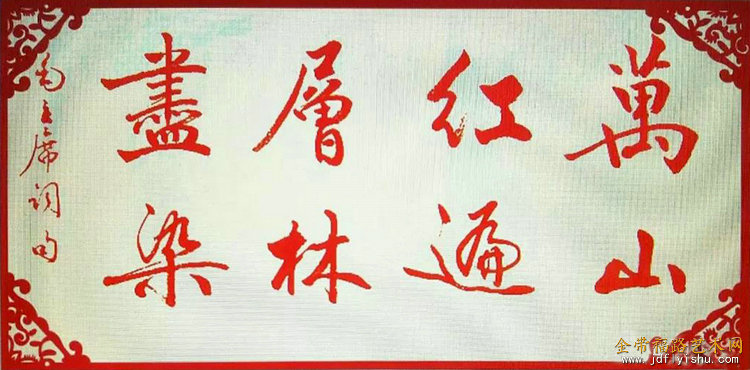 萬山
红遍
層林
盡染
毛主席詞句
金带福路艺术网
www.jdfyishu.com